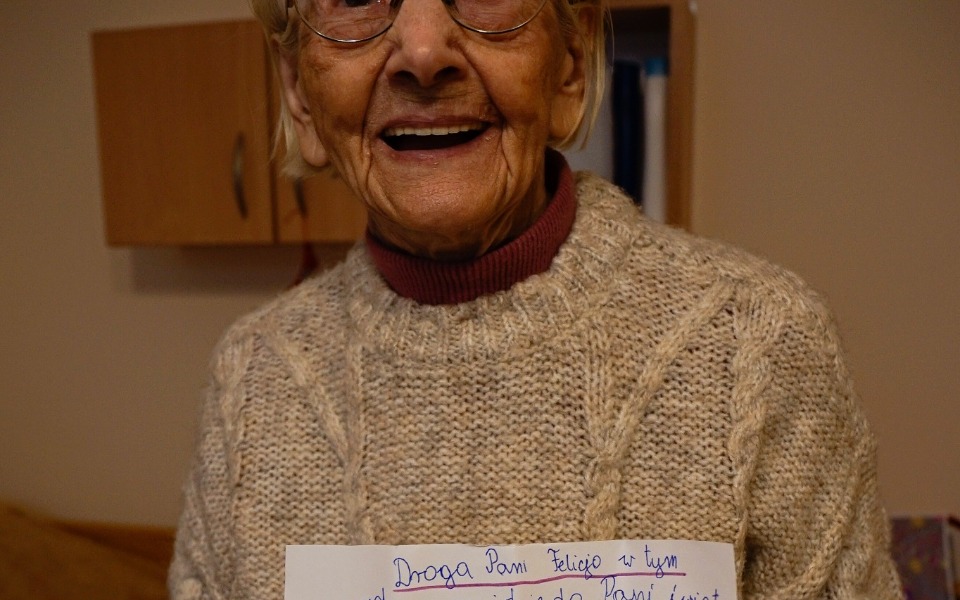 Droga Pani Felicjo w tym
Pani świąt